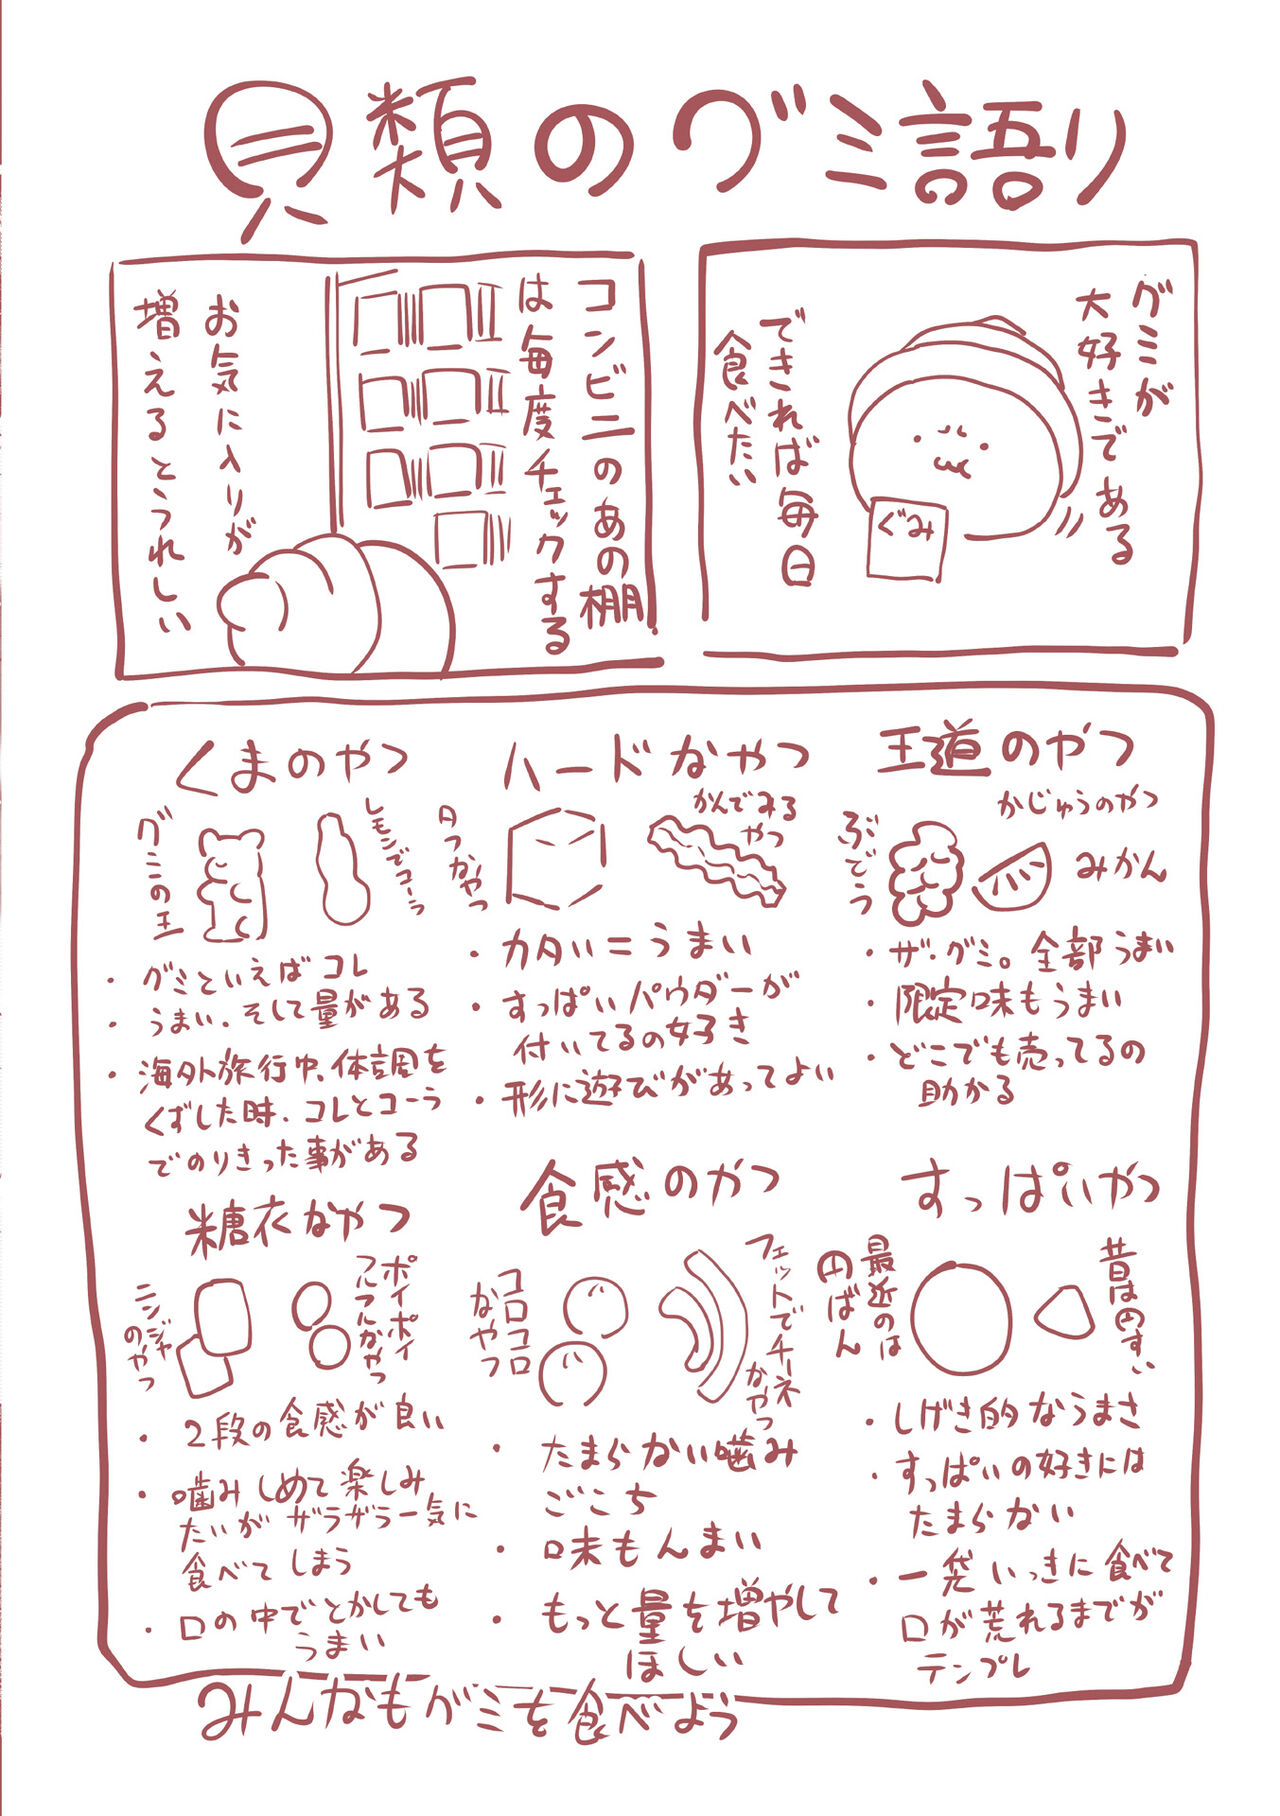 貝類のグミ語り
グミが
大好きである
できれば毎日
食べたい
ぐみ
コンビニのあの棚
は毎度チェックする
お気に入りが
増えるとうれしい
王道のやつ
かじゅうのやつ
ぶどう
みかん
・ザ・グミ。全部うまい
・限定味もうまい
・どこでも売ってるの
助かる
ハードなやつ
かんでみる
やつ
・カタい=うまい
・すっぱいパウダーが
付いてるの好き
・形に遊びがあってよい
くまのやつ
グミの王
レモンでコーラ
・グミといえばコレ
・うまい、そして量がある
・海外旅行中、体調を
くずした時、コレとコーラ
でのりきった事がある
すっぱいやつ
最近のは
円ばん
・しげき的なうまさ
・すっぱいの好きには
たまらない
・一袋いっきに食べて
口が荒れるまでが
テンプレ
食感のやつ
コロコロ
なやつ
フェットでチーネ
なやつ
・たまらない噛み
ごこち
・味もんまい
・もっと量を増やして
ほしい
糖衣なやつ
ニンジャ
のやつ
ポイポイ
・2段の食感が良い
・噛みしめて楽しみ
たいがザラザラ一気に
食べてしまう
・口の中でとかしても
うまい
みんなもグミを食べよう